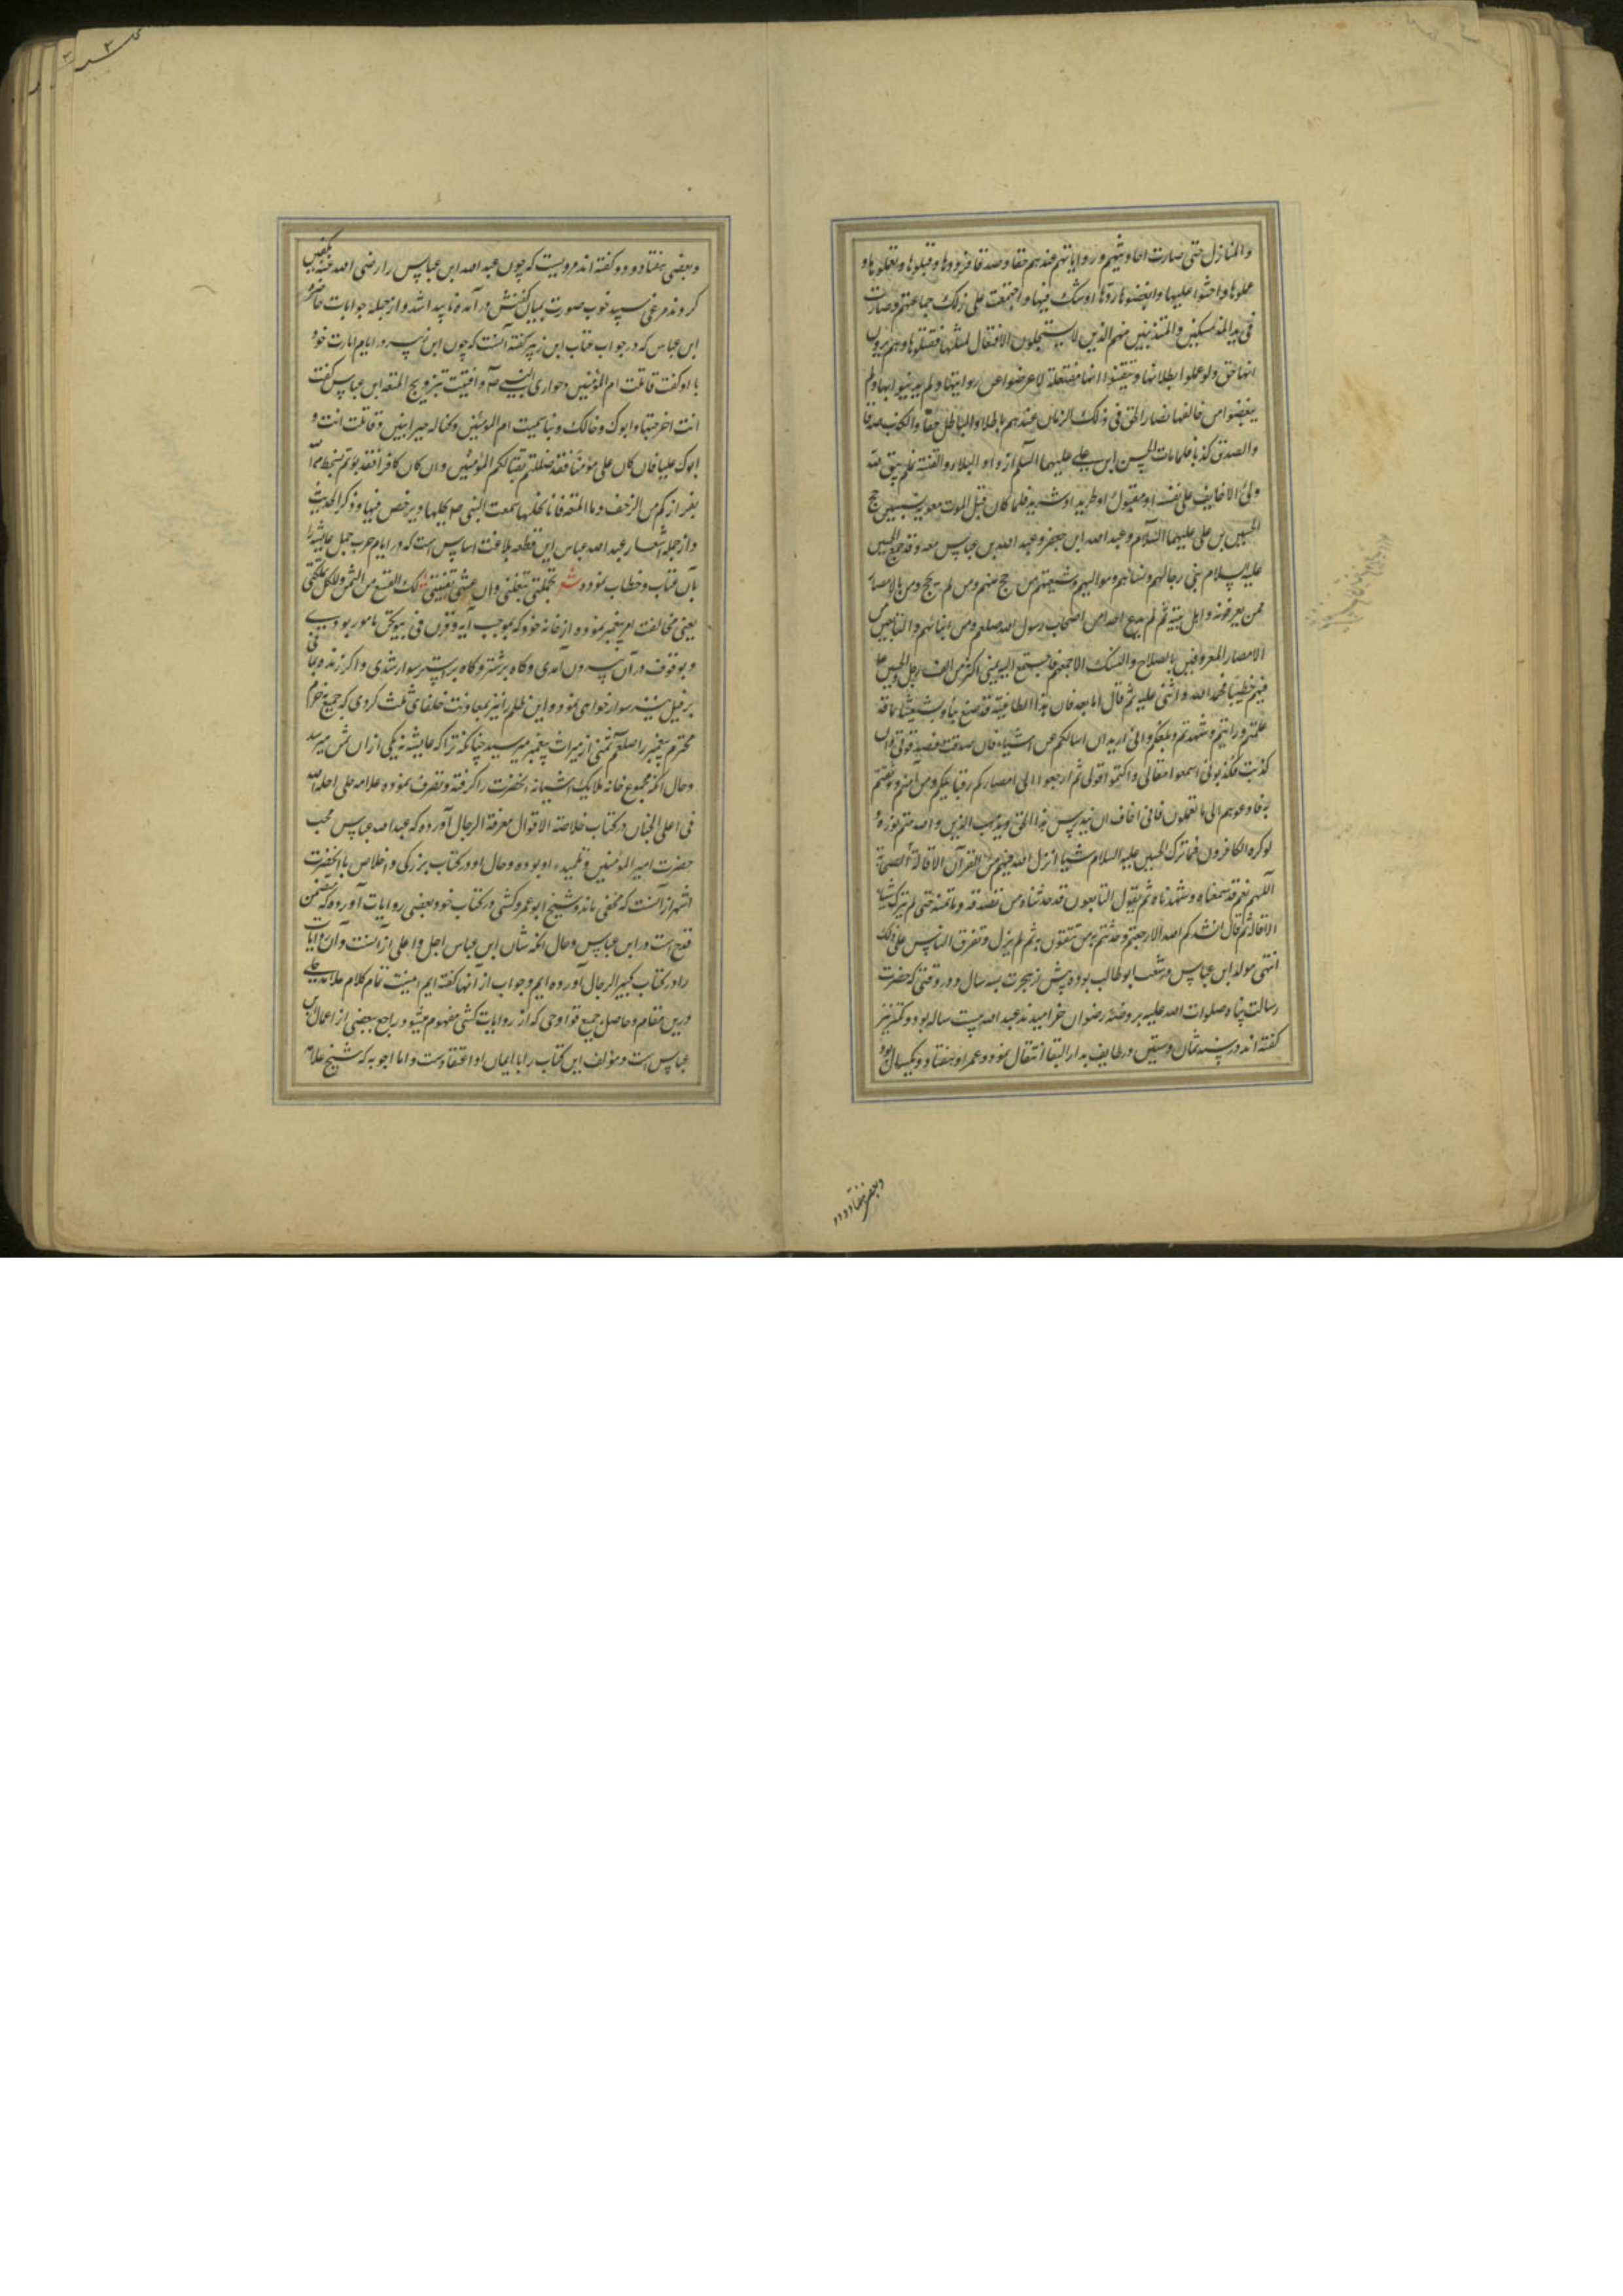 والمنازل حتی صارت احادیثهم وروایاتهم عندهم حقا وصدقا فرووها وقبلوها وتعلموها و
علموها واحبوا علیها وابغضوا من ردها او شک فیها واجتمعت علی ذلک جماعتهم وصارت
فی ید المتمسکین والمتدینین منهم الذین لا یستحلون الافتعال لمثلها فقبلوها وهم یرون
انها حق ولو علموا بطلانها وتیقنوا انها مفتعلة لاعرضوا عن روایتها ولم یدینوا بها ولم
یبغضوا من خالفها فصار الحق فی ذلک الزمان عندهم باطلا والباطل حقا والکذب صدقا
والصدق کذبا فلما مات الحسن ابن علی علیهما السلم ازداد البلاء والفتنة فلم یبق لله
ولی الا خایف علی نفسه او مقتول او طرید او شرید فلما کان قبل الموت معویه بسنتین حج
الحسین بن علی علیهما السلام وعبد الله ابن جعفر وعبد الله بن عباس معه وقد جمع الحسین
علیه السلام بنی رجالهم ونسائهم وموالیهم وشیعتهم من حج منهم ومن لم یحج ومن بالامصار
ممن یعرفونه واهل بیته ثم لم یدع احدا من اصحاب رسول الله صلعم ومن ابنائهم والتابعین من
الامصار المعروفین بالصلاح والنسک الا جمعهم فاجتمع الیه بمنی اکثر من الف رجل والحسین
فیهم خطیبا فحمد الله واثنی علیه ثم قال اما بعد فان هذا الطاغیة قد صنع بنا وبشیعتنا ما قد
علمتم ورایتم وشهدتم وبلغکم وانی ارید ان اسالکم عن اشیاء فان صدقت فصدقونی وان
کذبت فکذبونی اسمعوا مقالتی واکتموا قولی ثم ارجعوا الی امصارکم وقبایلکم ومن امنتم ووثقتم
به فادعوهم الی ما تعلمون فانی اخاف ان یندرس هذا الحق ویذهب الذین والله متم نوره و
لو کره الکافرون فما ترک الحسین علیه السلام شیئا انزل الله فیهم من القرآن الا قاله
اللهم نعم قد سمعناه وشهدناه ثم یقول التابعون قد حدثناه من نصدقه ونأتمنه حتی لم یترک شیئا
الا قاله ثم قال انشدکم الله الا رجعتم وحدثتم به من تثقون به ثم نزل وتفرق الناس علی ذلک
انتهی مولد ابن عباس در شعب ابو طالب بوده پیش از هجرت بسه سال ودر وقتی که حضرت
رسالت پناه صلوات الله علیه بروضه رضوان خرامیدند عبد الله بیست ساله بود وکمتر نیز
گفته اند در سنه ثمان وستین در طایف بدار البقا انتقال نمود وعمر او هفتاد ویکسال بود
وبعضی هفتاد ودو
وبعضی هفتاد ودو گفته اند مرویست که چون عبد الله ابن عباس را رضی الله عنه تکفین
کردند مرغی سپید خوب صورت بمیان کفنش درآمده ناپیدا شد واز جمله جوابات حاضره
ابن عباس که در جواب عتاب ابن زبیر گفته آنست که چون ابن زبیر در ایام امارت خود
با او گفت قاتلت ام المؤمنین وحواری النبی ص وافتیت بتزویج المتعه ابن عباس گفت
انت اخرجتها وابوک وخالک وبنا سمیت ام المؤمنین وکنا له خیر ابنین وقاتلت انت و
ابوک علیا فان کان علی مؤمنا فقد ضللتم بقتالکم المؤمنین وان کان کافرا فقد بؤتم بسخط من الله
بفرارکم من الزحف واما المتعه فانا نحلها سمعت النبی ص یحلها ویرخص فیها وذکر الحدیث
واز جمله اشعار عبد الله عباس این قطعه بلاغت اساس است که در ایام حرب جمل عایشه را
بآن عتاب وخطاب نموده شعر تجملت تبغلت وان عشت تفیلت لک التسع من الثمن وللکل تملکت
یعنی مخالفت امر پیغمبر نموده از خانه خود که بموجب آیه وقرن فی بیوتکن مامور بودی
وبوقوف در آن بیرون آمدی وگاه بر شتر وگاه بر استر سوار شدی واگر زنده بمانی
بر فیل نیز سوار خواهی نمود واین ظلم را نیز بمعاونت خلفای ثلث کردی که جمیع حرم
محترم پیغمبر را صلعم ثمنی از میراث پیغمبر میرسید چنانکه ترا که عایشه نه یکی از ان ثمن میرسد
وحال انکه مجموع خانه ملایک آشیانه آنحضرت را گرفته وتصرف نموده علامه حلی احله الله
فی اعلی الجنان در کتاب خلاصة الاقوال معرفة الرجال آورده که عبد الله عباس محب
حضرت امیر المؤمنین وتلمیذ او بوده وحال او در کتاب بزرکی واخلاص با آنحضرت
اشهر از آنست که مخفی ماند وشیخ ابو عمرو کشی در کتاب خود بعضی روایات آورده که متضمن
قدح است در ابن عباس وحال انکه شان ابن عباس اجل واعلی از آنست وآن روایات
را در کتاب کبیر الرجال آورده ایم وجواب از آنها گفته ایم اینست تمام کلام علامه حلی
درین مقام وحاصل جمیع قوادحی که از روایات کشی مفهوم میشود راجع ببعضی از اعمال ابن
عباس است ومؤلف این کتاب را بایمان او اعتقاد است واما اجوبه که شیخ علامه